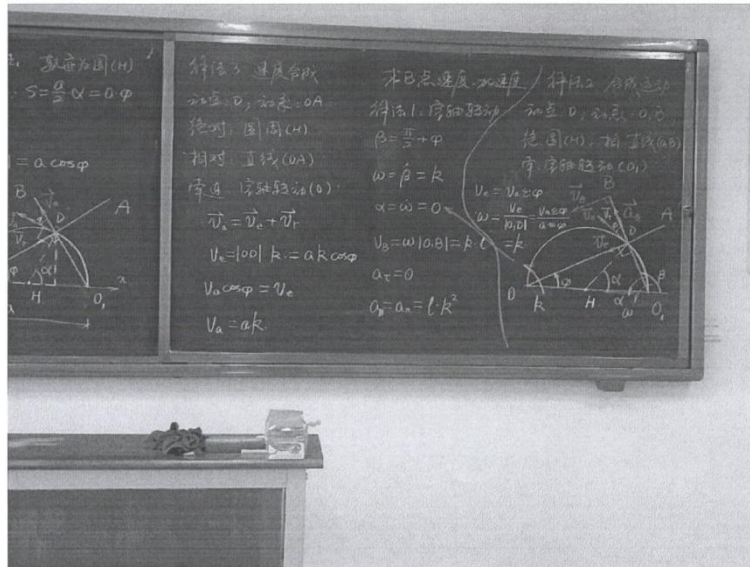 轨迹为圆(H)
S=\frac{a}{2}·α=a·φ
=a cosφ
B
A
D
φ
H
O₁
x
解法3 速度合成
动点:D; 动系:OA
绝对:圆周(H)
相对:直线(OA)
牵连:定轴转动(O)
\vec{v}_a=\vec{v}_e+\vec{v}_r
v_e=|OD| k=ak cosφ
v_a cosφ=v_e
v_a=ak
求B点速度.加速度
解法1.定轴转动
β=\frac{π}{2}+φ
ω=\dot{β}=k
α=\dot{ω}=0
v_B=ω|O₁B|=k·l
a_τ=0
a_B=a_n=l·k²
解法2 合成运动
动点:D; 动系:O₁B
绝:圆(H); 相:直线(O₁B)
牵:定轴转动(O₁)
v_e=v_a cosφ
ω=\frac{v_e}{|O₁D|}=\frac{v_a cosφ}{a cosφ}
=k
B
A
D
O
k
φ
H
α
ω
β
O₁